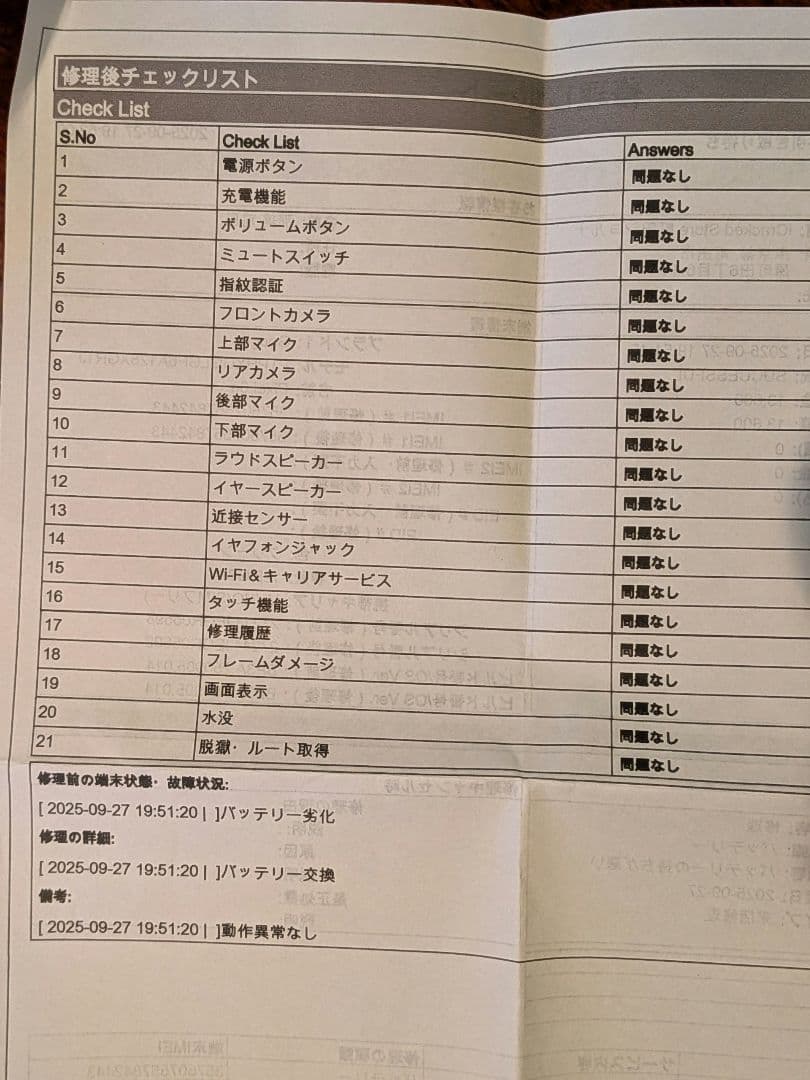 修理後チェックリスト
Check List
S.No Check List Answers
1 電源ボタン 問題なし
2 充電機能 問題なし
3 ボリュームボタン 問題なし
4 ミュートスイッチ 問題なし
5 指紋認証 問題なし
6 フロントカメラ 問題なし
7 上部マイク 問題なし
8 リアカメラ 問題なし
9 後部マイク 問題なし
10 下部マイク 問題なし
11 ラウドスピーカー 問題なし
12 イヤースピーカー 問題なし
13 近接センサー 問題なし
14 イヤフォンジャック 問題なし
15 Wi-Fi&キャリアサービス 問題なし
16 タッチ機能 問題なし
17 修理履歴 問題なし
18 フレームダメージ 問題なし
19 画面表示 問題なし
20 水没 問題なし
21 脱獄・ルート取得 問題なし
修理前の端末状態・故障状況:
[ 2025-09-27 19:51:20 | ]バッテリー劣化
修理の詳細:
[ 2025-09-27 19:51:20 | ]バッテリー交換
備考:
[ 2025-09-27 19:51:20 | ]動作異常なし